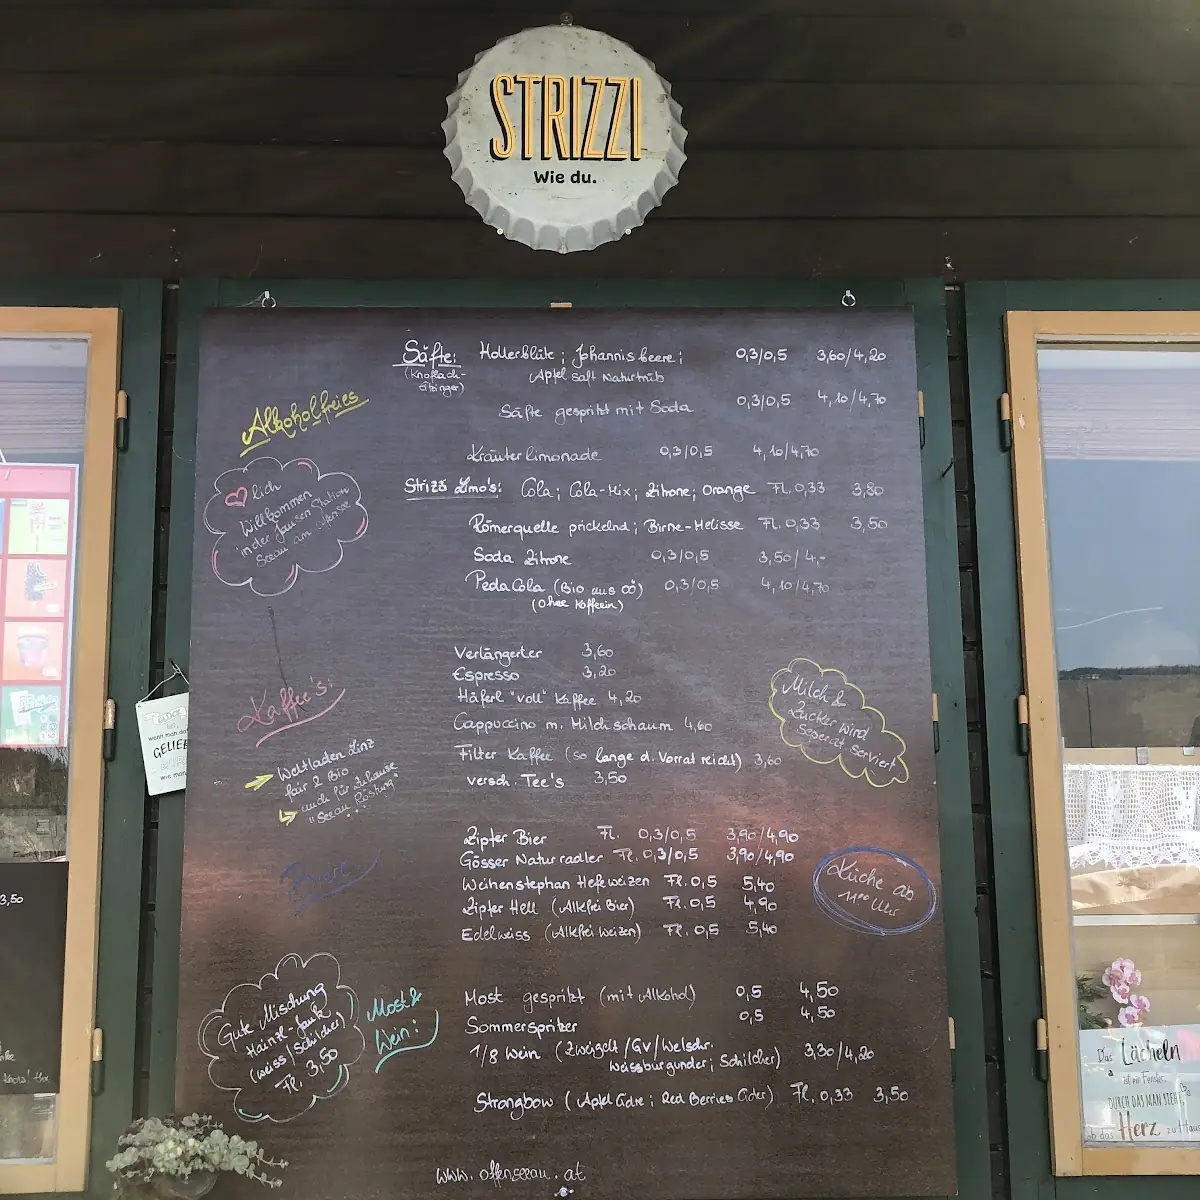 STRIZZI
Wie du.
Säfte: Hollerblüte; Johannisbeere; 0,3/0,5 3,60/4,20
Apfelsaft Naturtrüb
Säfte gespritzt mit Soda 0,3/0,5 4,10/4,70
Alkoholfreies
Kräuterlimonade 0,3/0,5 4,10/4,70
Strizzi Limo's: Cola; Cola-Mix; Zitrone; Orange Fl. 0,33 3,80
Römerquelle prickelnd; Birne-Melisse Fl. 0,33 3,50
Soda Zitrone 0,3/0,5 3,50/4,-
PedaCola (Bio aus OÖ) 0,3/0,5 4,10/4,70
(ohne Koffein)
lich
Willkommen
in der Jausen Station
Seeau am Offensee
Kaffee's:
Verlängerter 3,60
Espresso 3,20
Häferl "voll" Kaffee 4,20
Cappuccino m. Milchschaum 4,60
Filter Kaffee (so lange d. Vorrat reicht) 3,60
versch. Tee's 3,50
Milch &
Zucker wird
seperat serviert
Weltladen Linz
fair 2 Bio
auch für Zuhause
"Seeau Röstung"
Biere
Zipfer Bier Fl. 0,3/0,5 3,90/4,90
Gösser Naturradler Fl. 0,3/0,5 3,90/4,90
Weihenstephan Hefeweizen Fl. 0,5 5,40
Zipfer Hell (Alkfrei Bier) Fl. 0,5 4,90
Edelweiss (Alkfrei Weizen) Fl. 0,5 5,40
Küche ab
11⁰⁰ Uhr
Most &
Wein:
Most gespritzt (mit Alkohol) 0,5 4,50
Sommerspritzer 0,5 4,50
1/8 Wein (Zweigelt/GV/Welschr. 3,30/4,20
Weissburgunder; Schilcher)
Strongbow (Apfel Cidre; Red Berries Cider) Fl. 0,33 3,50
Gute Mischung
(weiss/Schilcher)
Fl. 3,50
www.offenseeau.at
wenn man
GELIE
wie man
3,50
Das Lächeln
ist ein Fenster,
DURCH DAS MAN SIEHT,
ob das Herz zu Haus